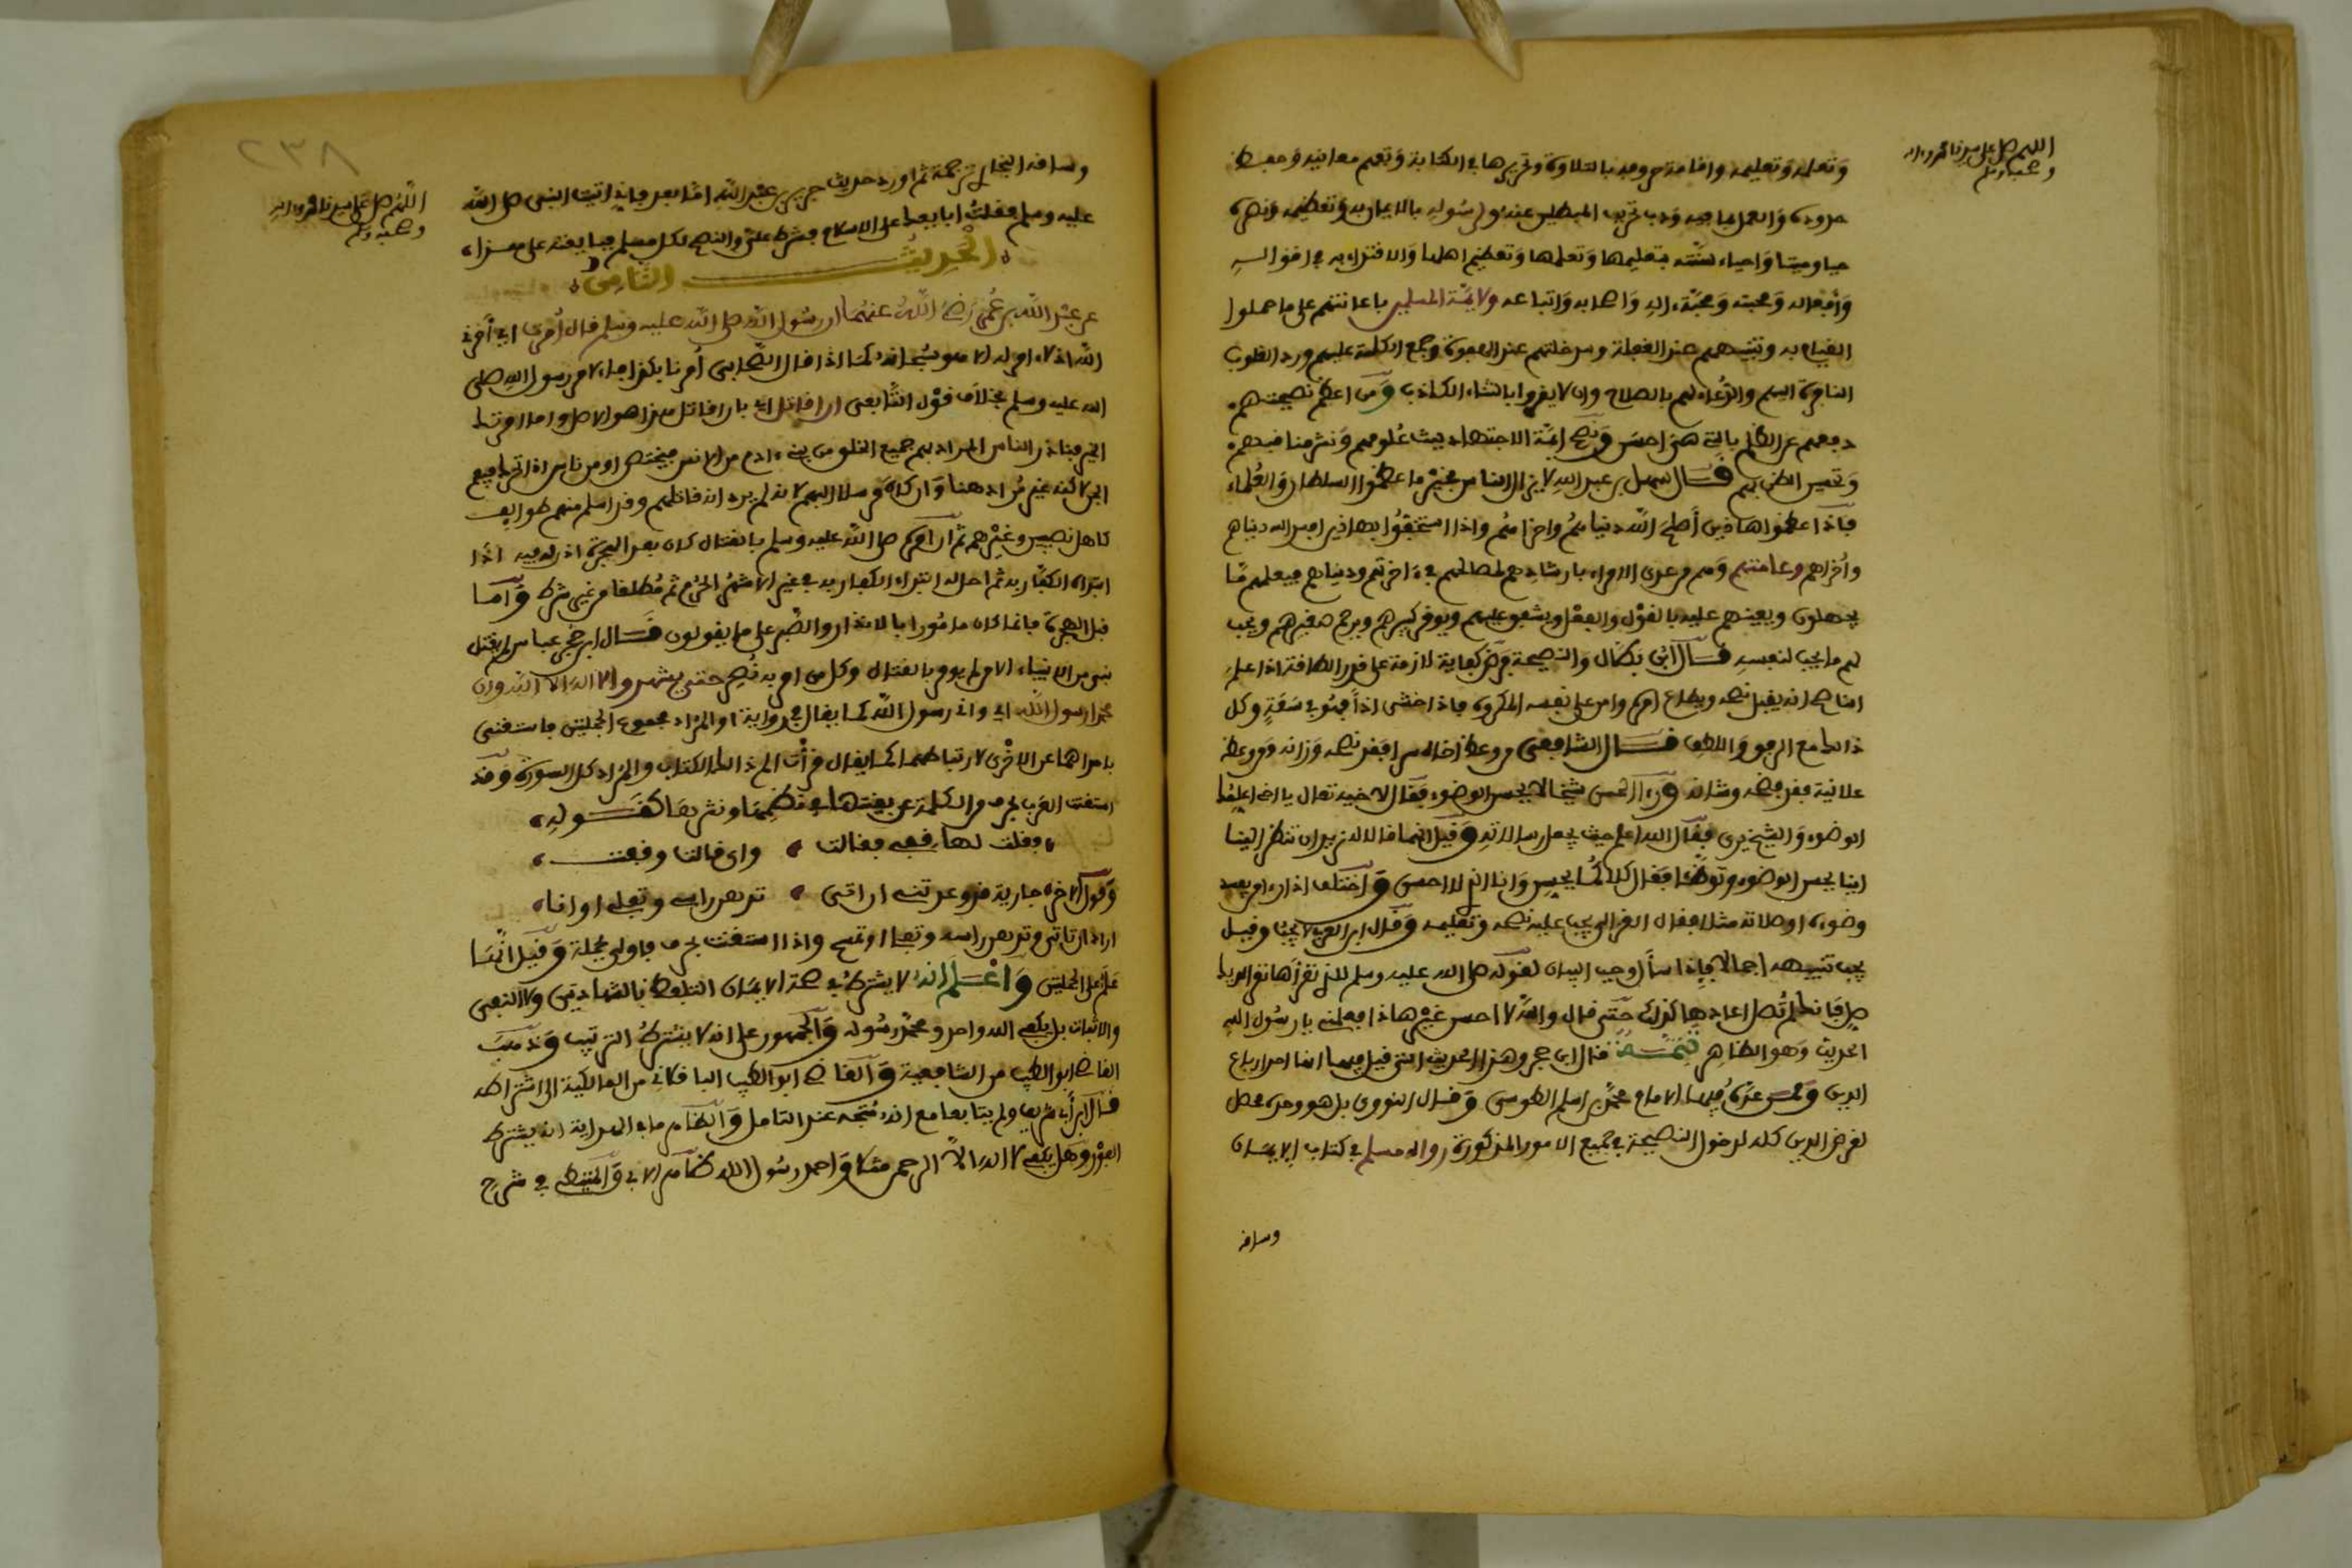 اللهم صل على سيدنا محمد وءاله
وصحبه وسلم
وتعلمه وتعليمه واقامة حروفه بالتلاوة وتحريرها في الكتابة وتفهم معانيه وحفظ
حدوده والعمل بما فيه وذب تحريف المبطلين عنه ولرسوله بالايمان به وتعظيمه ونصره
حيا وميتا واحياء سنته بتعليمها وتعلمها وتعظيم اهلها والاقتداء به في اقواله
وافعاله ومحبته ومحبة ءاله واصحابه واتباعه ولائمة المسلمين باعانتهم على ما حملوا
القيام به وتنبيههم عند الغفلة وسد خلتهم عند الهفوة وجمع الكلمة عليهم ورد القلوب
النافرة اليهم والدعاء لهم بالصلاح وان لا يغروا بالثناء الكاذب ومن اعظم نصيحتهم
دفعهم عن الظلم بالتي هي احسن ونصح ايمة الاجتهاد ببث علومهم ونشر مناقبهم
وتحسين الظن بهم قال سهل بن عبد الله لا يزال الناس بخير ما عظموا السلطان والعلماء
فاذا عظموا هاذين أصلح الله دنياهم واخراهم واذا استخفوا بهاذين افسد الله دنياهم
وأخراهم وعامتهم وهم من عدى الامراء بارشادهم لمصالحهم في ءاخرتهم ودنياهم فيعلمهم ما
يجهلون ويعينهم عليه بالقول والفعل ويشفق عليهم ويوقر كبيرهم ويرحم صغيرهم ويحب
لهم ما يحب لنفسه قال ابن بطال والنصيحة فرض كفاية لازمة على قدر الطاقة اذا علم
الناصح انه يقبل نصحه ويطاع امره وامن على نفسه المكروه فاذا خشى اذى فهو في سعة وكل
ذالك مع الرفق واللطف قال الشافعى من وعظ اخاه سرا فقد نصحه وزانه ومن وعظه
علانية فقد فضحه وشانه ورءا الحسن شيخا لا يحسن الوضوء فقال لاخيه تعال يا اخى اعلمنا
الوضوء والشيخ يرى فقال الله اعلم حيث يجعل رسالاته وقيل انهما قالا له نريد ان تنظر الينا
اينا يحسن الوضوء وتوضئا فقال كلاكما يحسن وانا الذي لا احسن واختلف اذا رءا من يفسد
وضوءه او صلاته مثلا فقال الغزالى يجب عليه نصحه وتعليمه وقال ابن العربي لا يجب وقيل
يجب تنبيهه اجمالا فاذا سأل وجب البيان لقوله صلى الله عليه وسلم للذي نقرأها نقر الديك
صل فإنك لم تصل اعادها كذلك حتى قال والله لا احسن غير هاذا فعلمنى يا رسول الله
الحديث وهو الظاهر تتمة قال ابن حجر وهذا الحديث التى قيل فيها انها احد ارباع
الدين وممن عده فيها الامام محمد بن اسلم الطوسى وقال النووى بل هو وحده محصل
لغرض الدين كله لدخول النصيحة في جميع الامور المذكورة رواه مسلم في كتاب الايمان
وساقه
٢٣٨
اللهم صل على سيدنا محمد وءاله
وصحبه وسلم
وساقه البخارى ترجمة ثم اورد حديث جرير بن عبد الله اما بعد فإنى اتيت النبى صلى الله
عليه وسلم فقلت ابايعك على الاسلام فشرط على والنصح لكل مسلم فبايعته على هذا
الحديث الثامن
عن عبد الله بن عمر رضي الله عنهما ان رسول الله صلى الله عليه وسلم قال أمرت اي أمرني
الله اذ لا ءامر له الا هو سبحانه كما اذا قال الصحابى أمرنا بكذا فالامر رسول الله صلى
الله عليه وسلم بخلاف قول التابعى ان اقاتل اي بان اقاتل هذا هو الاصل واما امرتك
الخير فنادر الناس المراد بهم جميع الخلق من بني ءادم من الانس فيختص او من ناس اذا تحرك فيعم
الجن لاكنه غير مراد هنا وان كان مرسلا اليهم لانه لم يرد انه قاتلهم وقد اسلم منهم طوايف
كاهل نصيبين وغيرهم ثم ان امره صلى الله عليه وسلم بالقتال كان بعد الهجرة اذ له فيه اذا
ابتدأه الكفار به ثم احل له ابتداء الكفار به في غير الاشهر الحرم ثم مطلقا من غير شرط وأما
قبل الهجرة فانما كان مامورا بالانذار والصبر على ما يقولون قال ابن حجر عباس لم يقتل
نبى من الانبياء الا من لم يومر بالقتال وكل من امر به نصر حتى يشهدوا ان لا اله الا الله وان
محمدا رسول الله اي وانى رسول الله كما يقال في رواية او المراد مجموع الجملتين فاستغنى
باحداهما عن الاخرى لارتباطهما كما يقال قرأت الم ذالك الكتاب والمراد كل السورة وقد
استغنت العرب بحرف من الكلمة عن بقيتها في نظمها ونثرها كقوله
فقلت لها قفى فقالت واى قالت وقفت
وقول الاخر جارية قد وعدتنى ان اتى تدهن راسى وتفلى اوافا
اراد ان تاتى وتدهن راسه وتفلى او تمسح واذا استغنت بحرف فاولى بجملة وقيل انها
علم على الجملتين واعلم انه لا يشترط في صحة الايمان التلفظ بالشهادتين ولا النفى
والاثبات بل يكفى الله واحد ومحمد رسوله والجمهور على انه لا يشترط الترتيب وذهب
القاضى ابو الطيب من الشافعية والقاضى ابو الطيب الباقلانى من المالكية الى اشتراطه
قال ابن أبى شريف ولم يتابعا مع انه متجه عند التامل والظاهر ما في الهداية انه يشترط
الفور وهل يكفى لا اله الا الرحمن مثلا واحمد رسول الله ظاهر الابي والمتيطى في شرح